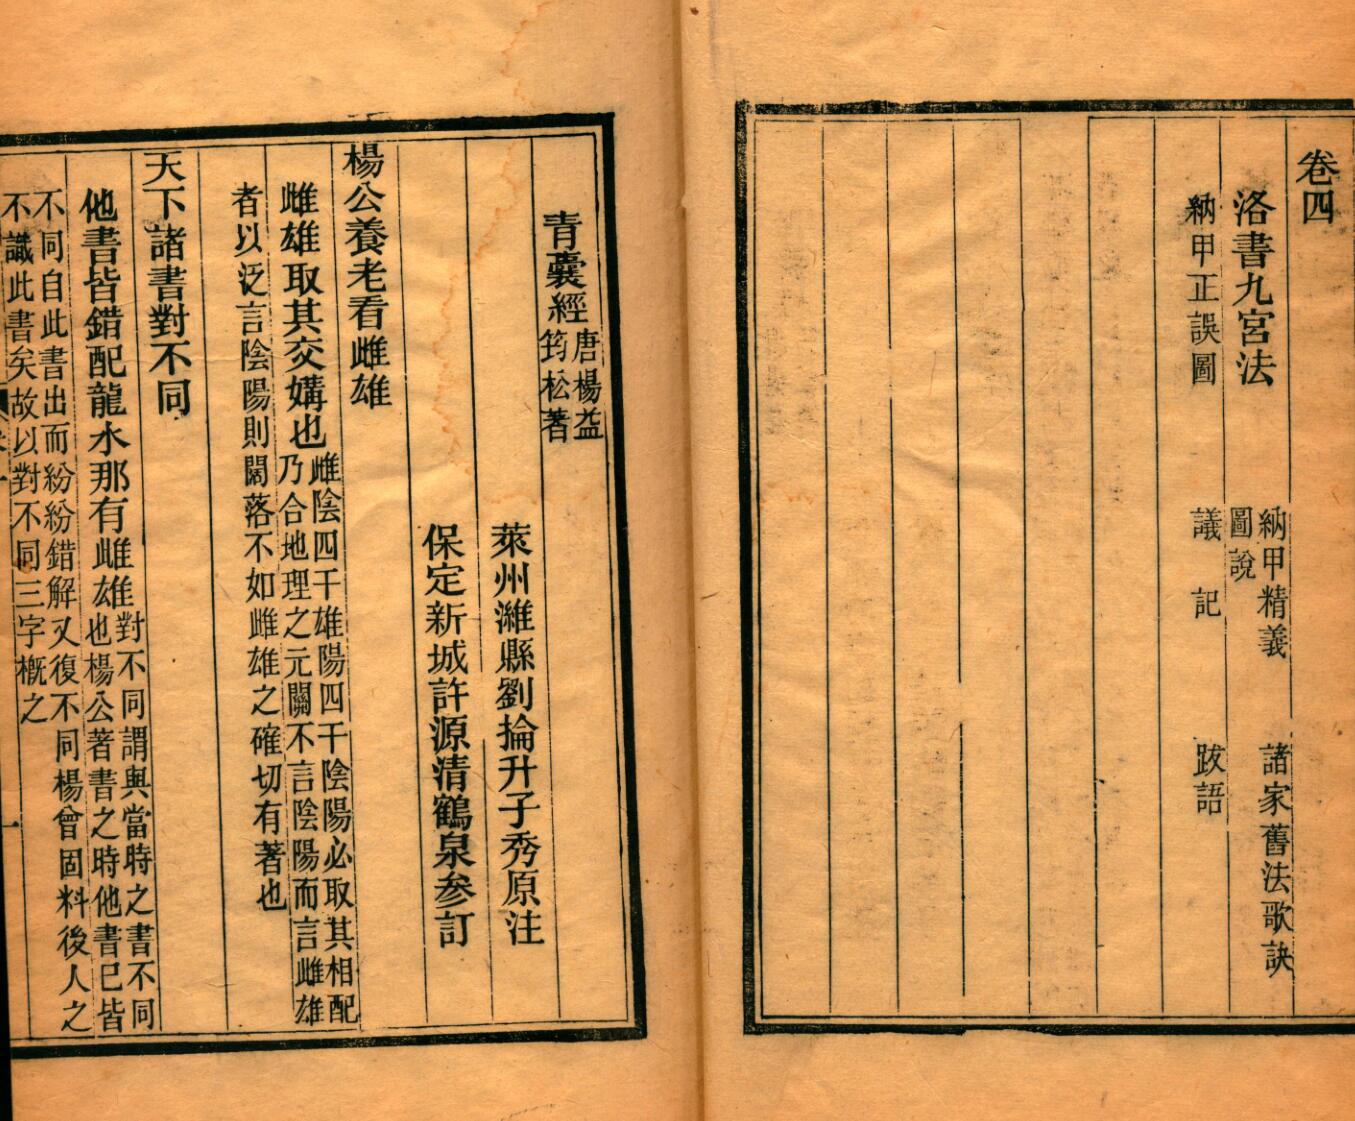 卷四
洛書九宮法
納甲精義
圖說
諸家舊法歌訣
納甲正誤圖
議記
跋語
青囊經
唐楊益
筠松著
萊州濰縣劉掄升子秀原注
保定新城許源清鶴泉參訂
楊公養老看雌雄
雌雄取其交媾也
雌陰四干雄陽四干陰陽必取其相配
乃合地理之元關不言陰陽而言雌雄
者以泛言陰陽則闊落不如雌雄之確切有著也
天下諸書對不同
他書皆錯配龍水那有雌雄也
對不同謂與當時之書不同
楊公著書之時他書已皆
不同自此書出而紛紛錯解又復不同楊曾固料後人之
不識此書矣故以對不同三字概之
一